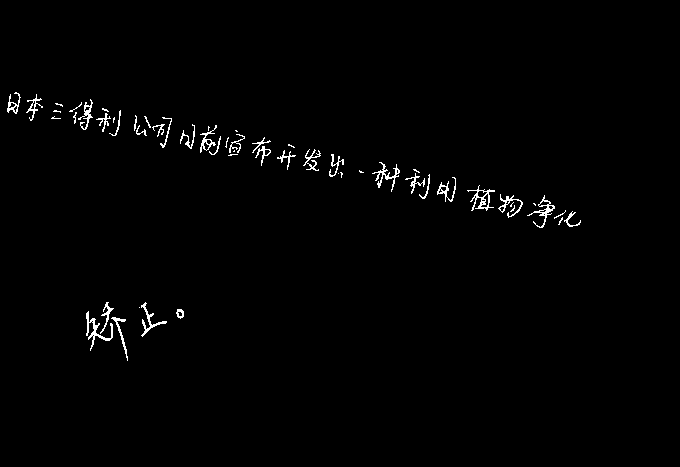 日本三得利公司日前宣布开发出一种利用植物净化
矫正。